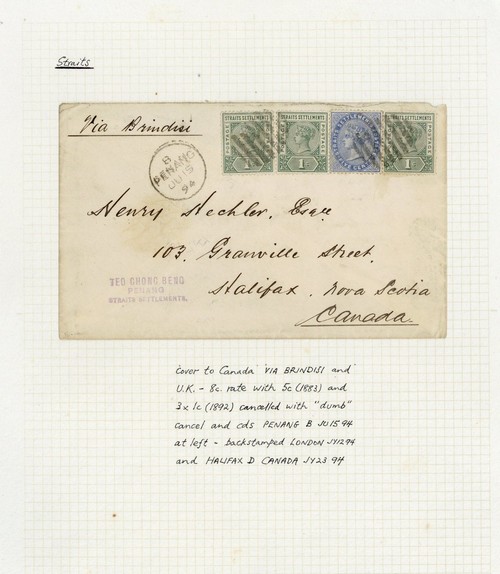 Straits
Via Brindisi
STRAITS SETTLEMENTS
POSTAGE
POSTAGE
1c
STRAITS SETTLEMENTS
POSTAGE
POSTAGE
1c
STRAITS SETTLEMENTS
FIVE CENTS
STRAITS SETTLEMENTS
POSTAGE
POSTAGE
1c
B
PENANG
JU 15
94
Henry Hechler, Esqre
103, Granville Street,
Halifax, Nova Scotia
Canada.
TEO CHONG BENG
PENANG
STRAITS SETTLEMENTS.
Cover to Canada VIA BRINDISI and
U.K. - 8c. rate with 5c (1883) and
3 x 1c (1892) cancelled with "dumb"
cancel and cds PENANG B JU15 94
at left - backstamped LONDON JY12 94
and HALIFAX D CANADA JY23 94